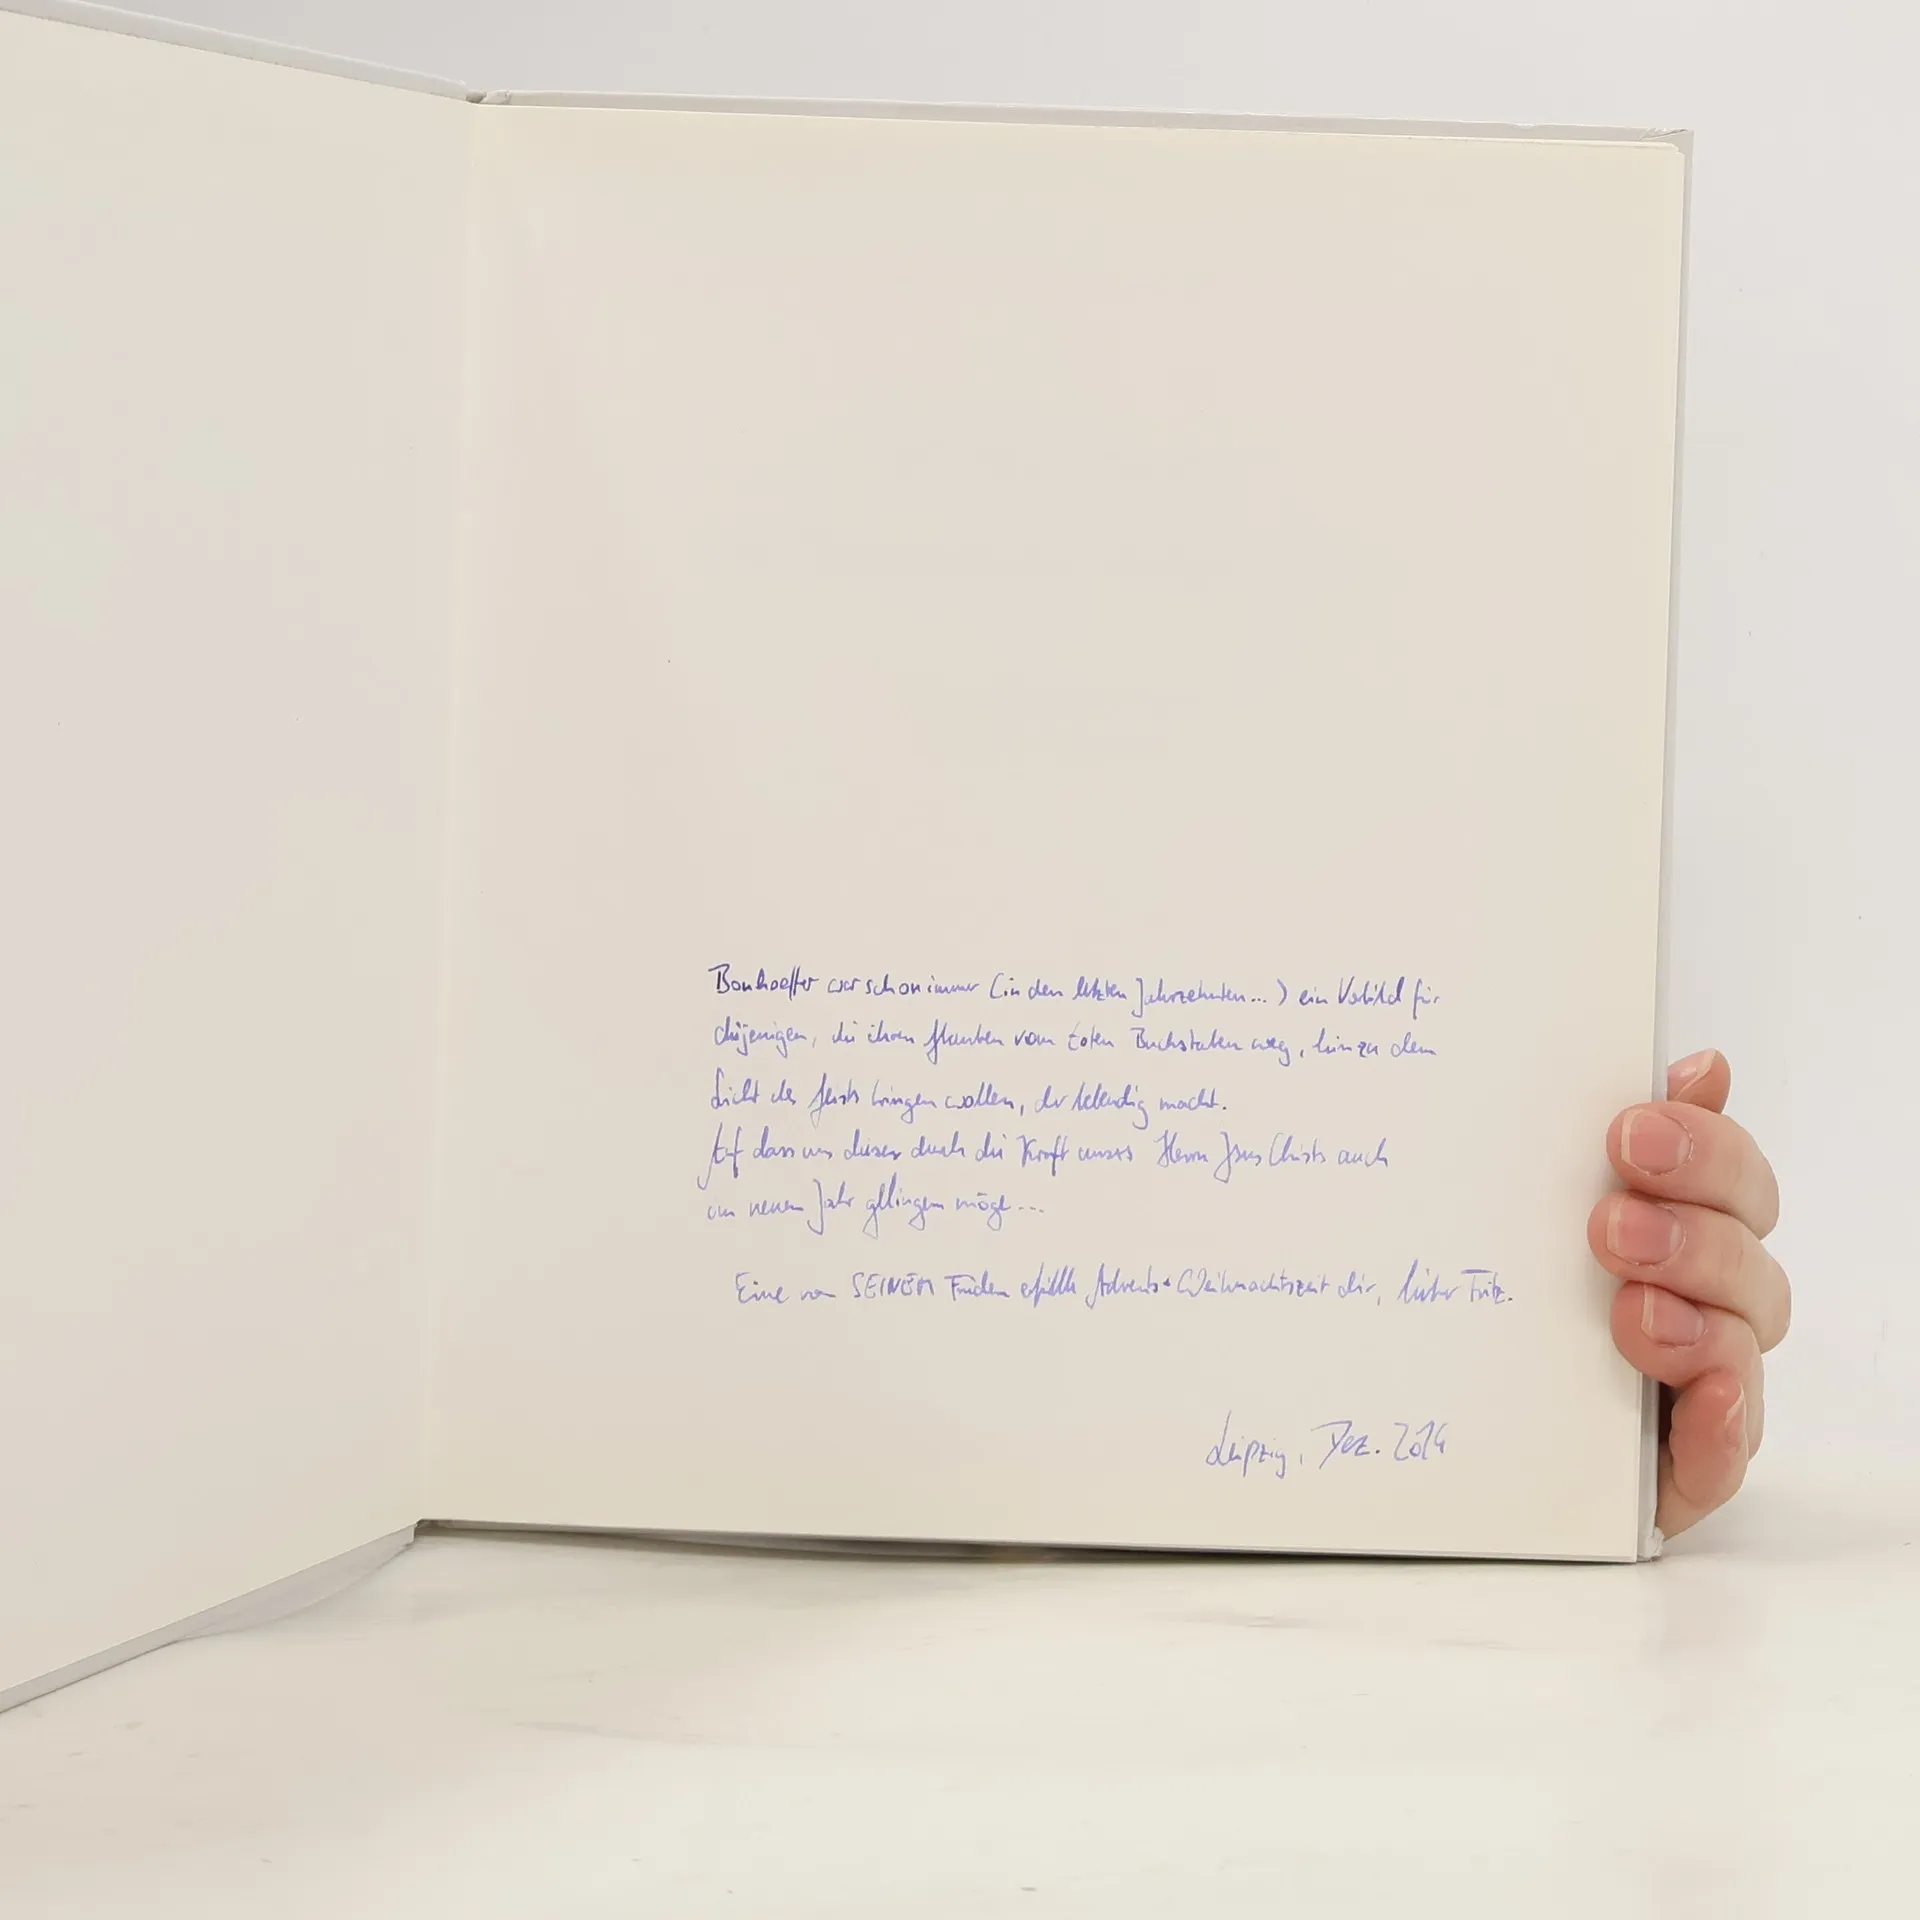 Bonhoeffer war schon immer (in den letzten Jahrzehnten...) ein Vorbild für
diejenigen, die ihren Glauben vom toten Buchstaben weg, hin zu dem
Licht des Geists bringen wollen, der lebendig macht.
Auf dass uns dieses durch die Kraft unsres Herrn Jesus Christs auch
im neuen Jahr gelingen möge...
Eine von SEINEM Frieden erfüllte Advents- Weihnachtszeit dir, lieber Fritz.
Leipzig, Dez. 2014